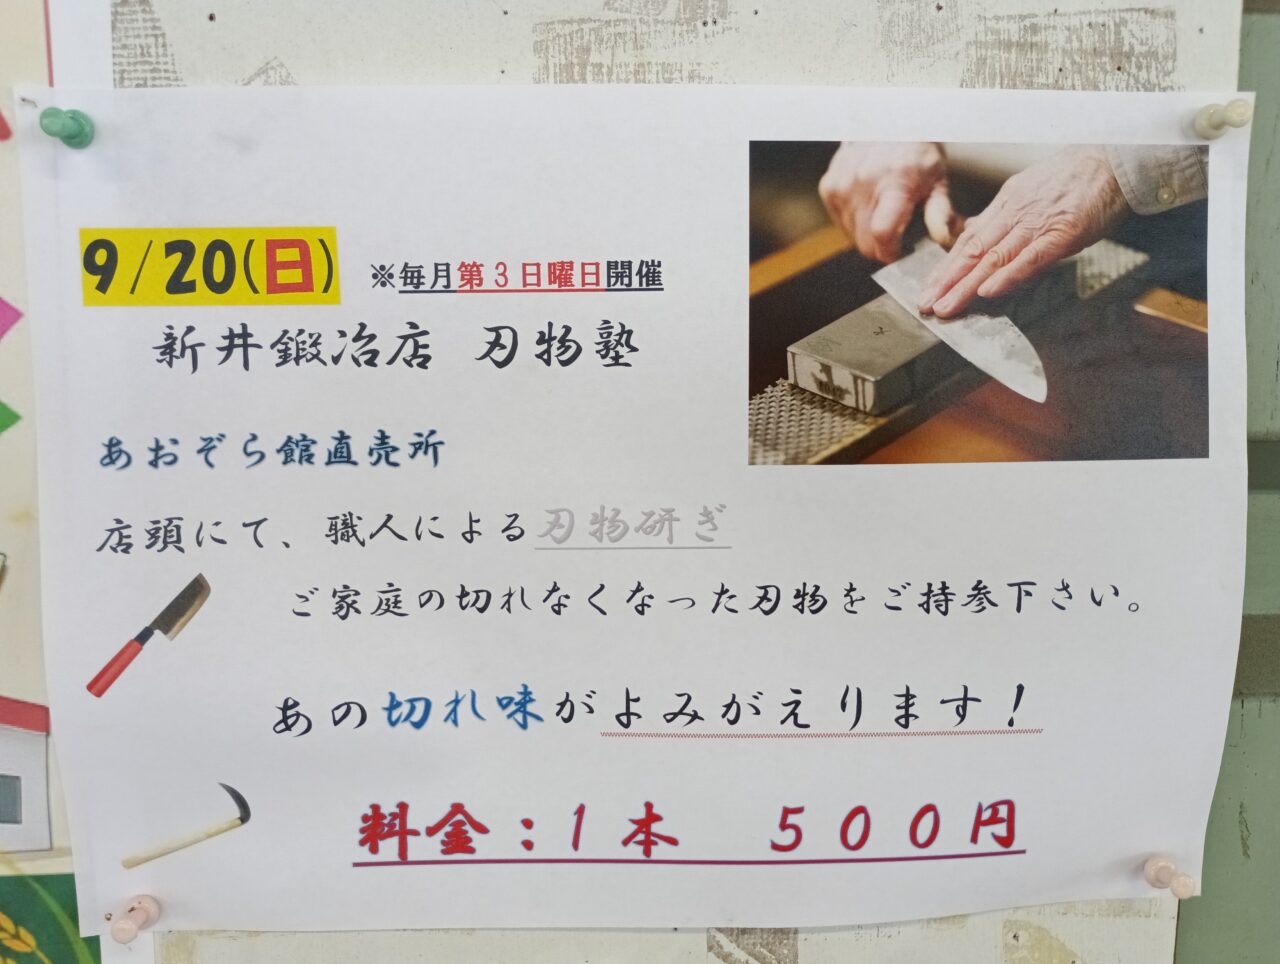 9/20(日) ※毎月第3日曜日開催
新井鍛冶店 刃物塾
あおぞら館直売所
店頭にて、職人による刃物研ぎ
ご家庭の切れなくなった刃物をご持参下さい。
あの切れ味がよみがえります!
料金:1本 500円